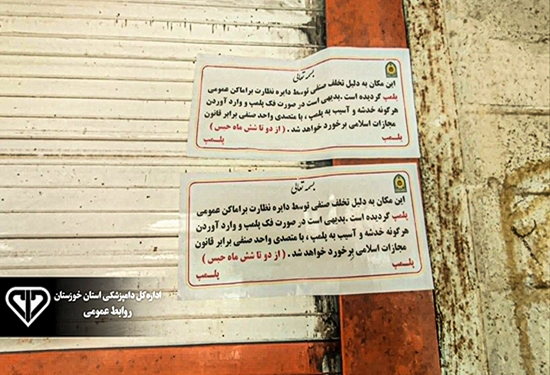 بسمه تعالی
این مکان به دلیل تخلف صنفی توسط دایره نظارت براماکن عمومی
پلمپ گردیده است .بدیهی است در صورت فک پلمپ و وارد آوردن
هرگونه خدشه و آسیب به پلمپ ، با متصدی واحد صنفی برابر قانون
مجازات اسلامی برخورد خواهد شد . ( از دو تا شش ماه حبس )
پلمپ پلمپ
بسمه تعالی
این مکان به دلیل تخلف صنفی توسط دایره نظارت براماکن عمومی
پلمپ گردیده است .بدیهی است در صورت فک پلمپ و وارد آوردن
هرگونه خدشه و آسیب به پلمپ ، با متصدی واحد صنفی برابر قانون
مجازات اسلامی برخورد خواهد شد . ( از دو تا شش ماه حبس )
پلمپ پلمپ
اداره کل دامپزشکی استان خوزستان
روابط عمومی